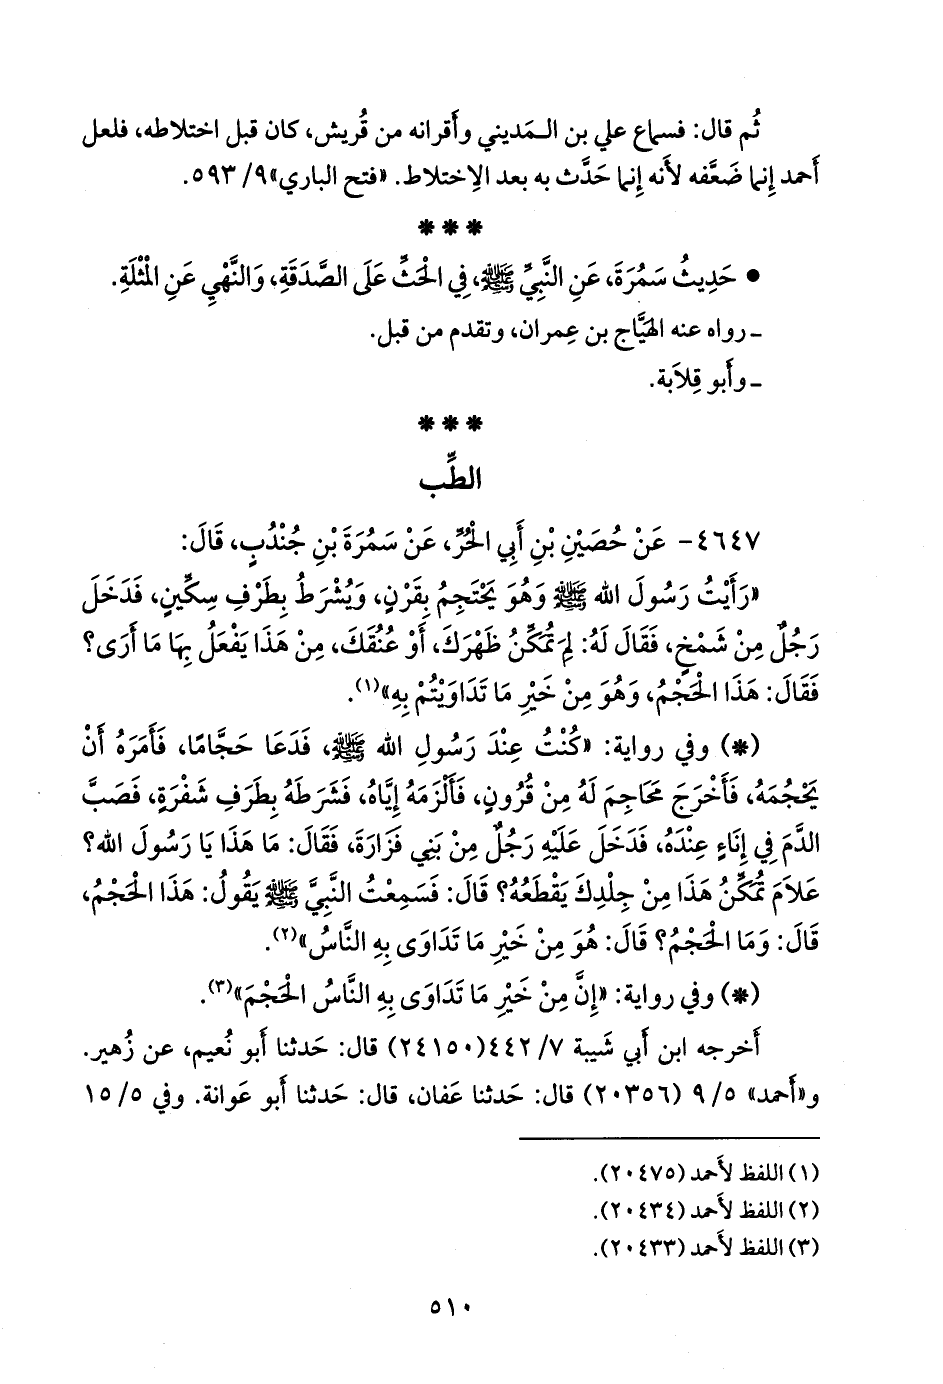 ثُم قال: فسماع علي بن الـمَديني وأَقرانه من قُريش، كان قبل اختلاطه، فلعل
أَحمد إِنما ضَعَّفه لأَنه إِنما حَدَّث به بعد الِاختلاط. «فتح الباري»٩/ ٥٩٣.
* * *
• حَدِيثُ سَمُرَةَ، عَنِ النَّبِيِّ ﷺ، فِي الْحَثِّ عَلَى الصَّدَقَةِ، وَالنَّهْيِ عَنِ الْمُثْلَةِ.
ـ رواه عنه الهَيَّاج بن عِمران، وتقدم من قبل.
ـ وأَبو قِلاَبة.
* * *
الطِّب
٤٦٤٧- عَنْ حُصَيْنِ بْنِ أَبِي الْحُرِّ، عَنْ سَمُرَةَ بْنِ جُنْدُبٍ، قَالَ:
«رَأَيْتُ رَسُولَ الله ﷺ وَهُوَ يَحْتَجِمُ بِقَرْنٍ، وَيُشْرَطُ بِطَرْفِ سِكِّينٍ، فَدَخَلَ
رَجُلٌ مِنْ شَمْخٍ، فَقَالَ لَهُ: لِمَ تُمَكِّنُ ظَهْرَكَ، أَوْ عُنُقَكَ، مِنْ هَذَا يَفْعَلُ بِهَا مَا أَرَى؟
فَقَالَ: هَذَا الْحَجْمُ، وَهُوَ مِنْ خَيْرِ مَا تَدَاوَيْتُمْ بِهِ»(١).
(*) وفي رواية: «كُنْتُ عِنْدَ رَسُولِ الله ﷺ، فَدَعَا حَجَّامًا، فَأَمَرَهُ أَنْ
يَحْجُمَهُ، فَأَخْرَجَ مَحَاجِمَ لَهُ مِنْ قُرُونٍ، فَأَلْزَمَهُ إِيَّاهُ، فَشَرَطَهُ بِطَرَفِ شَفْرَةٍ، فَصَبَّ
الدَّمَ فِي إِنَاءٍ عِنْدَهُ، فَدَخَلَ عَلَيْهِ رَجُلٌ مِنْ بَنِي فَزَارَةَ، فَقَالَ: مَا هَذَا يَا رَسُولَ الله؟
عَلاَمَ تُمَكِّنُ هَذَا مِنْ جِلْدِكَ يَقْطَعُهُ؟ قَالَ: فَسَمِعْتُ النَّبِيَّ ﷺ يَقُولُ: هَذَا الْحَجْمُ،
قَالَ: وَمَا الْحَجْمُ؟ قَالَ: هُوَ مِنْ خَيْرِ مَا تَدَاوَى بِهِ النَّاسُ»(٢).
(*) وفي رواية: «إِنَّ مِنْ خَيْرِ مَا تَدَاوَى بِهِ النَّاسُ الْحَجْمَ»(٣).
أَخرجه ابن أَبي شَيبة ٧/ ٤٤٢(٢٤١٥٠) قال: حَدثنا أَبو نُعيم، عن زُهير.
و«أَحمد» ٥/ ٩ (٢٠٣٥٦) قال: حَدثنا عَفان، قال: حَدثنا أَبو عَوانة. وفي ٥/ ١٥
(١) اللفظ لأَحمد (٢٠٤٧٥).
(٢) اللفظ لأَحمد (٢٠٤٣٤).
(٣) اللفظ لأَحمد (٢٠٤٣٣).
٥١٠